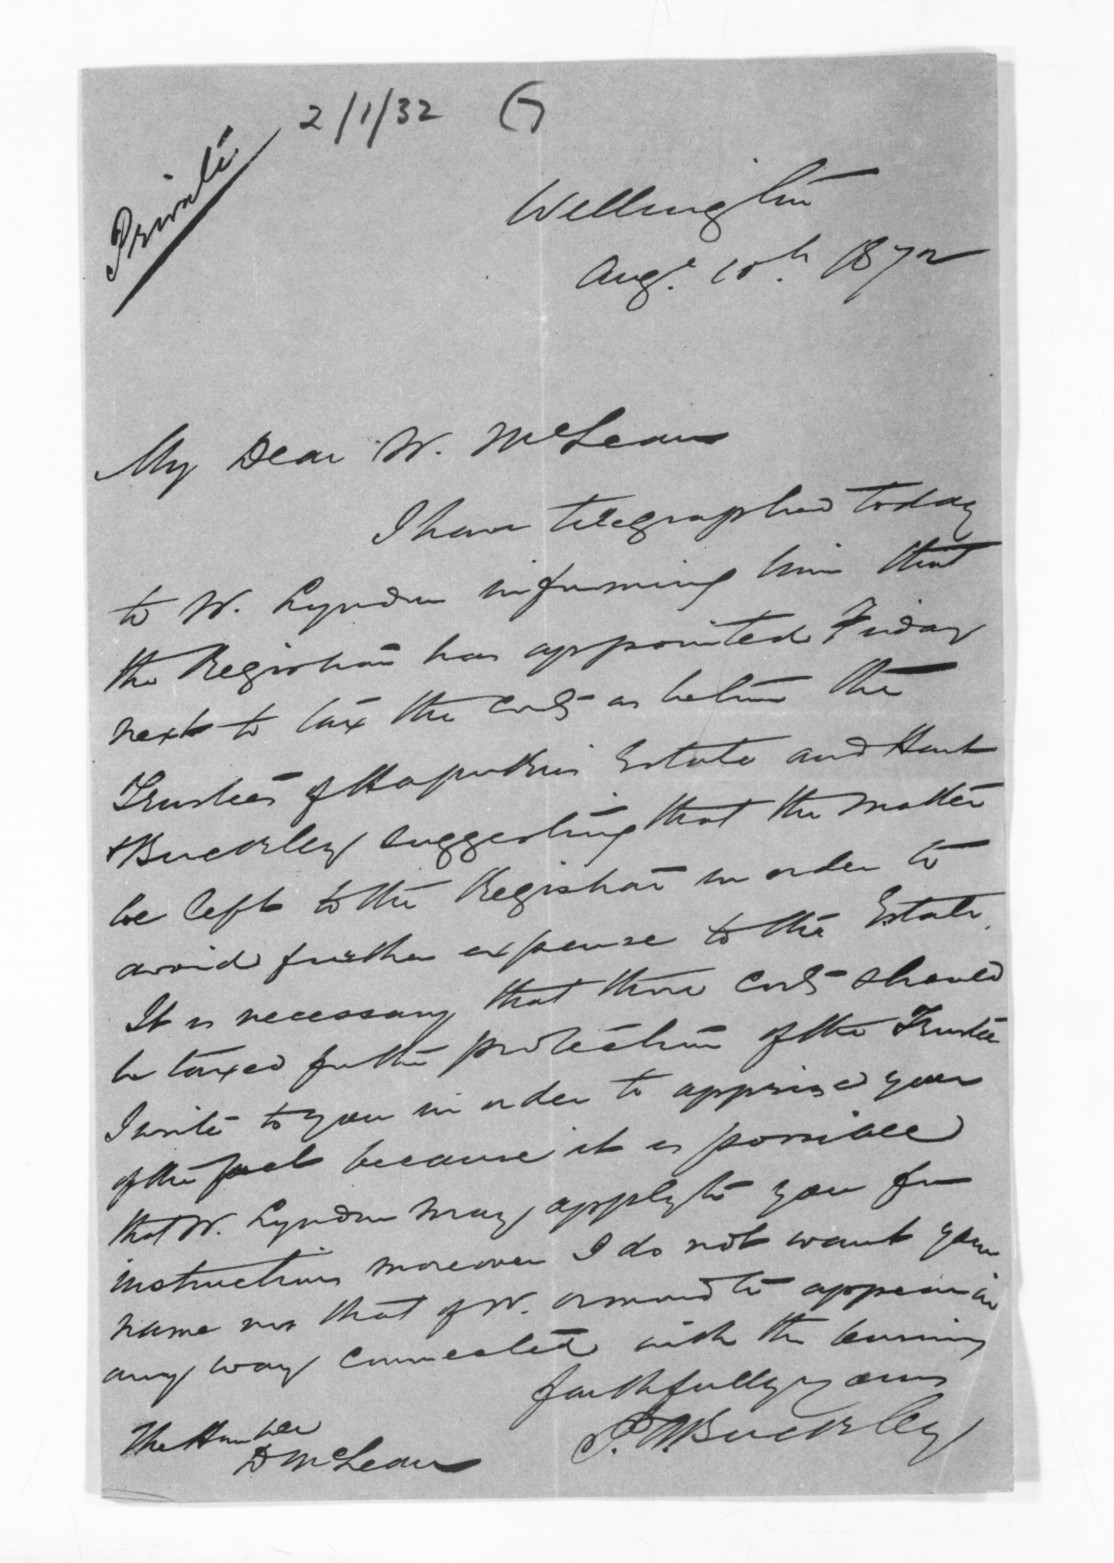 2/1/32 G
Private
Wellington
Augt. 10th. 1872
My Dear Mr. McLean
I have telegraphed today
to Mr. Lyndon informing him that
the Registrar has appointed Friday
next to tax the costs as between the
Trustees of Estate and Hart
& Buckley suggesting that the matter
be left to the Registrar in order to
avoid further expense to the Estate.
It is necessary that these costs should
be taxed for the protection of the Trustee
I write to you in order to apprise you
of the fact because it is possible
that Mr. Lyndon may apply to you for
instructions moreover I do not want your
name nor that of Mr. Ormond to appear in
any way connected with the business
faithfully yours
P. A. Buckley
The Honble
D McLean